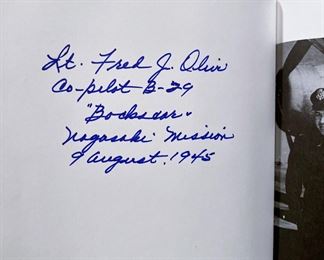 Lt. Fred J. Olivi
Co-pilot B-29
"Bockscar"
Nagasaki Mission
9 August, 1945